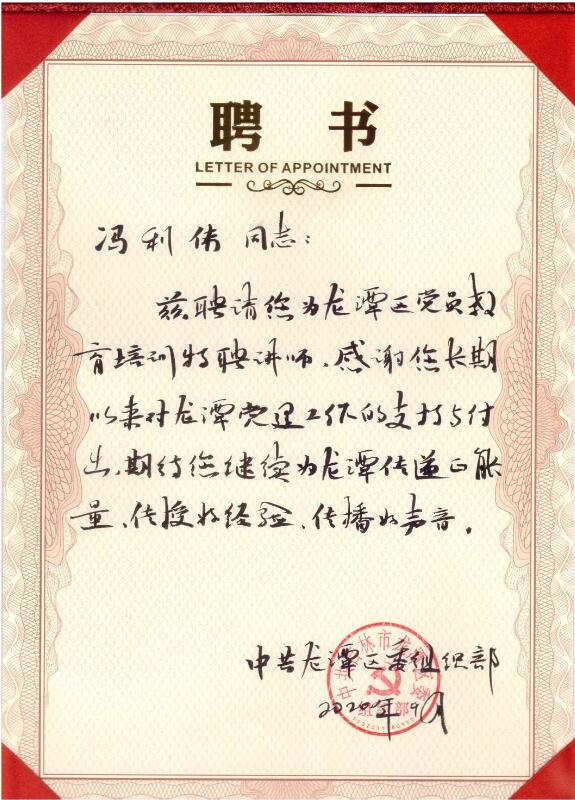 聘 书
LETTER OF APPOINTMENT
冯利伟 同志：
兹聘请您为龙潭区党员教
育培训特聘讲师。感谢您长期
以来对龙潭党建工作的支持与付
出，期待您继续为龙潭传递正能
量、传授好经验、传播好声音。
中共龙潭区委组织部
2020年9月